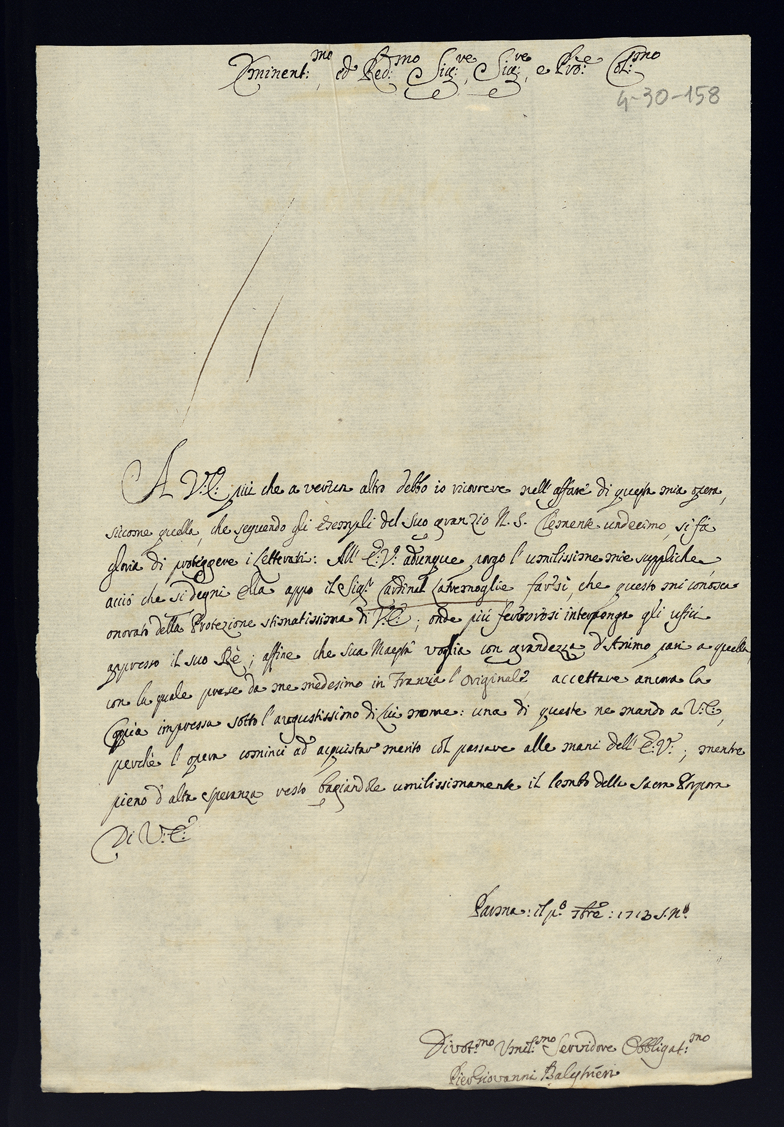 Eminent:mo ed Red:mo Sig:re Sig:re, e Pro͞ne Col:mo
4-30-158
A V:E: più che a verun altro debbo io ricorrere nell'affare di questa mia opera,
siccome quella, che seguendo gli esempli del Suo gran zio N. S. Clemente undecimo, si fà
gloria di proteggere i Letterati: All' E:V: adunque porgo l'umilissime mie suppliche,
acciò che si degni ella appo il Sig:r Cardinal Latremoglie farsi, che questo mi conosca
onorato della Protezione stimatissima di V:E:; onde più fervorosi interponga gli ufici
appresso il suo Rè; affine che sua Maestà voglia con grandezza d'Animo pari a quella,
con la quale prese da me medesimo in Francia l'originale accettare ancora la
Copia impressa sotto l'augustissimo di Lui nome: una di queste ne mando a V:E:,
perchè l'opera cominci ad acquistar merito col passare alle mani dell' E:V:; mentre
pieno d'alta speranza resto baciandole umilissimamente il lembo della Sacra Porpora
Di V:E:
Parma: il p:o 7bre: 1713
Divot:mo Umil:mo Servidore Obbligat:mo
Pier Giovanni Balestrieri